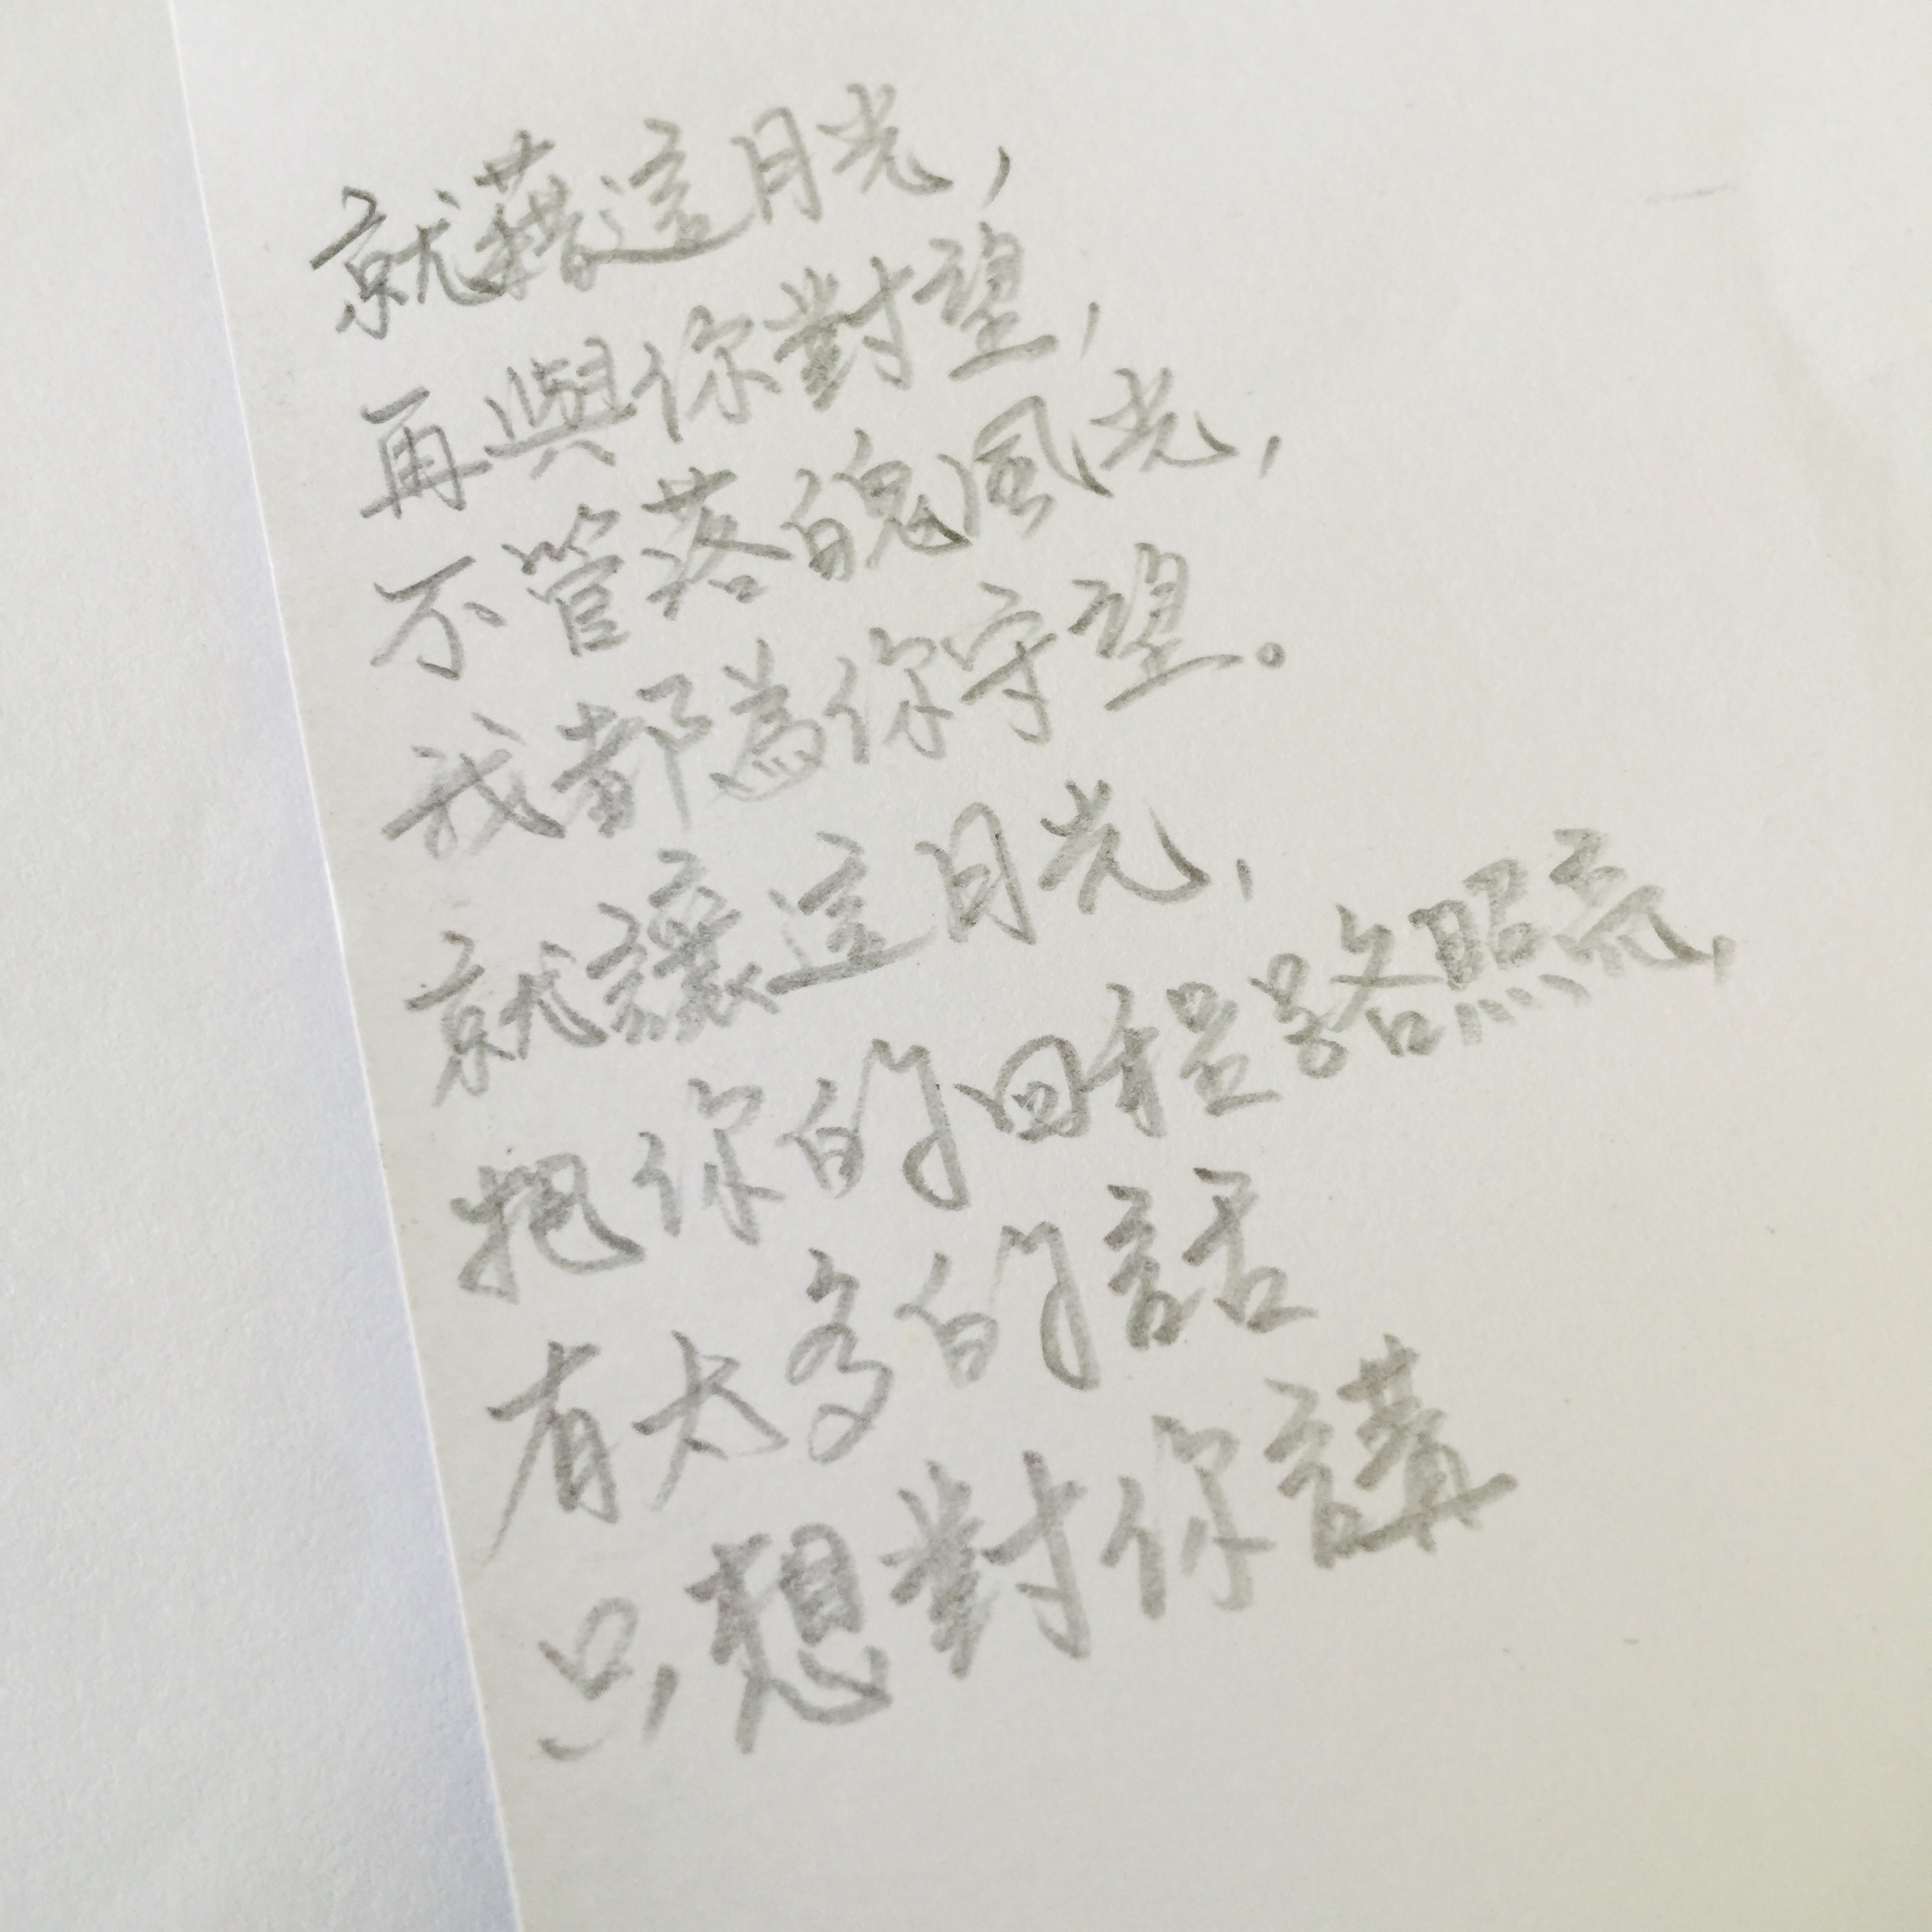 就藉這月光，
再與你對望，
不管落魄風光，
我都為你守望。
就讓這月光，
把你的回程路照亮，
有太多的話
只想對你講